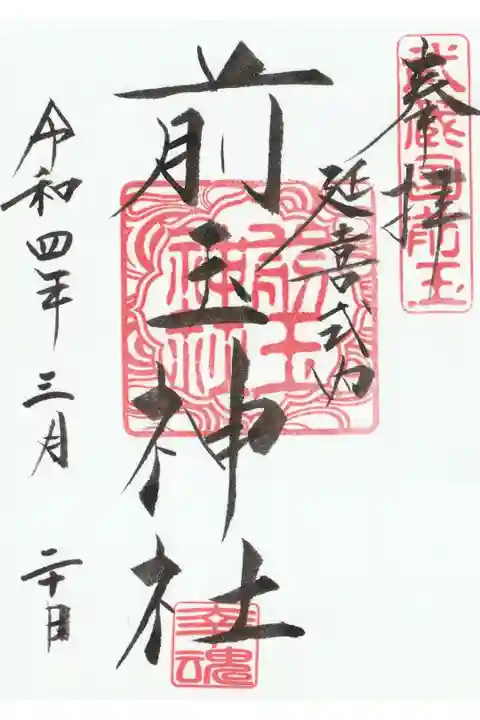 奉拝
武蔵国前玉
延喜式内
前玉神社
前玉
神社
幸魂
令和四年三月二十日